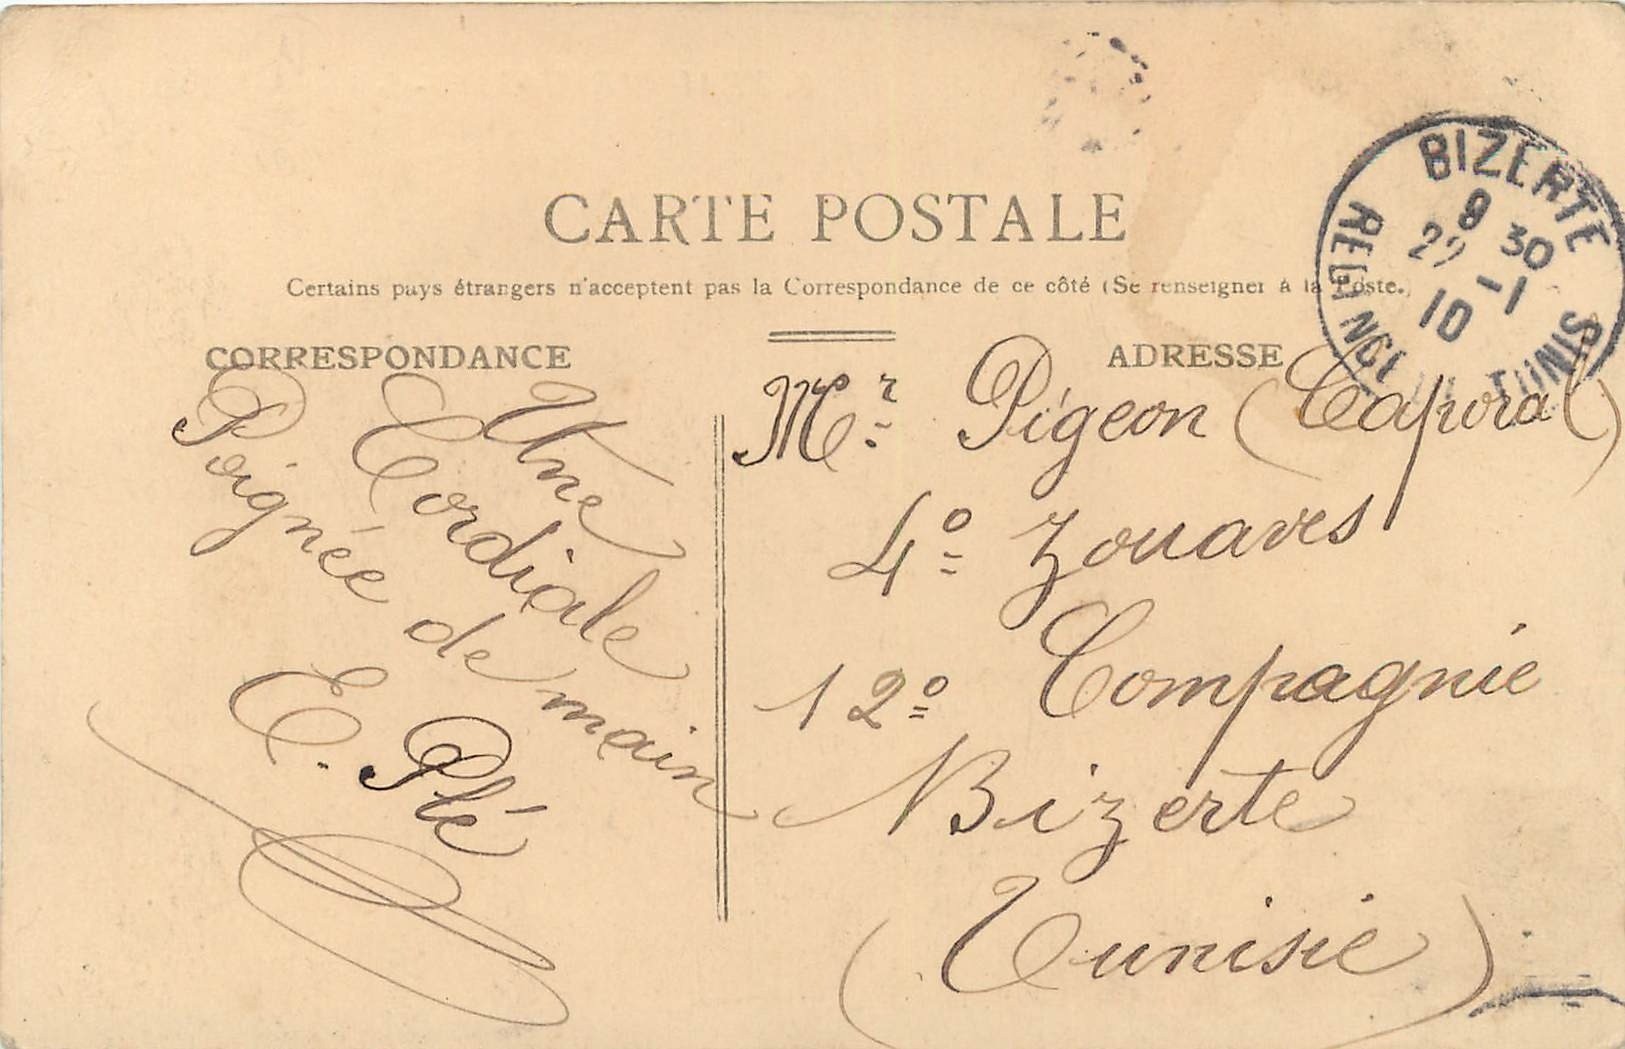 CARTE POSTALE
Certains pays étrangers n'acceptent pas la Correspondance de ce côté (Se renseigner à la Poste.)
CORRESPONDANCE
Une
Cordiale
Poignée de main
E. Plé
ADRESSE
Mr Pigeon (Caporal)
4o Zouaves
12o Compagnie
Bizerte
(Tunisie)
BIZERTE
9 30
22 -1
10
REGENCE DE TUNIS